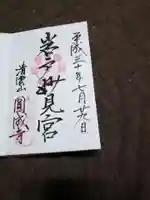 平成三十年七月廿八日
岩戸妙見宮
清雲山
圓成寺